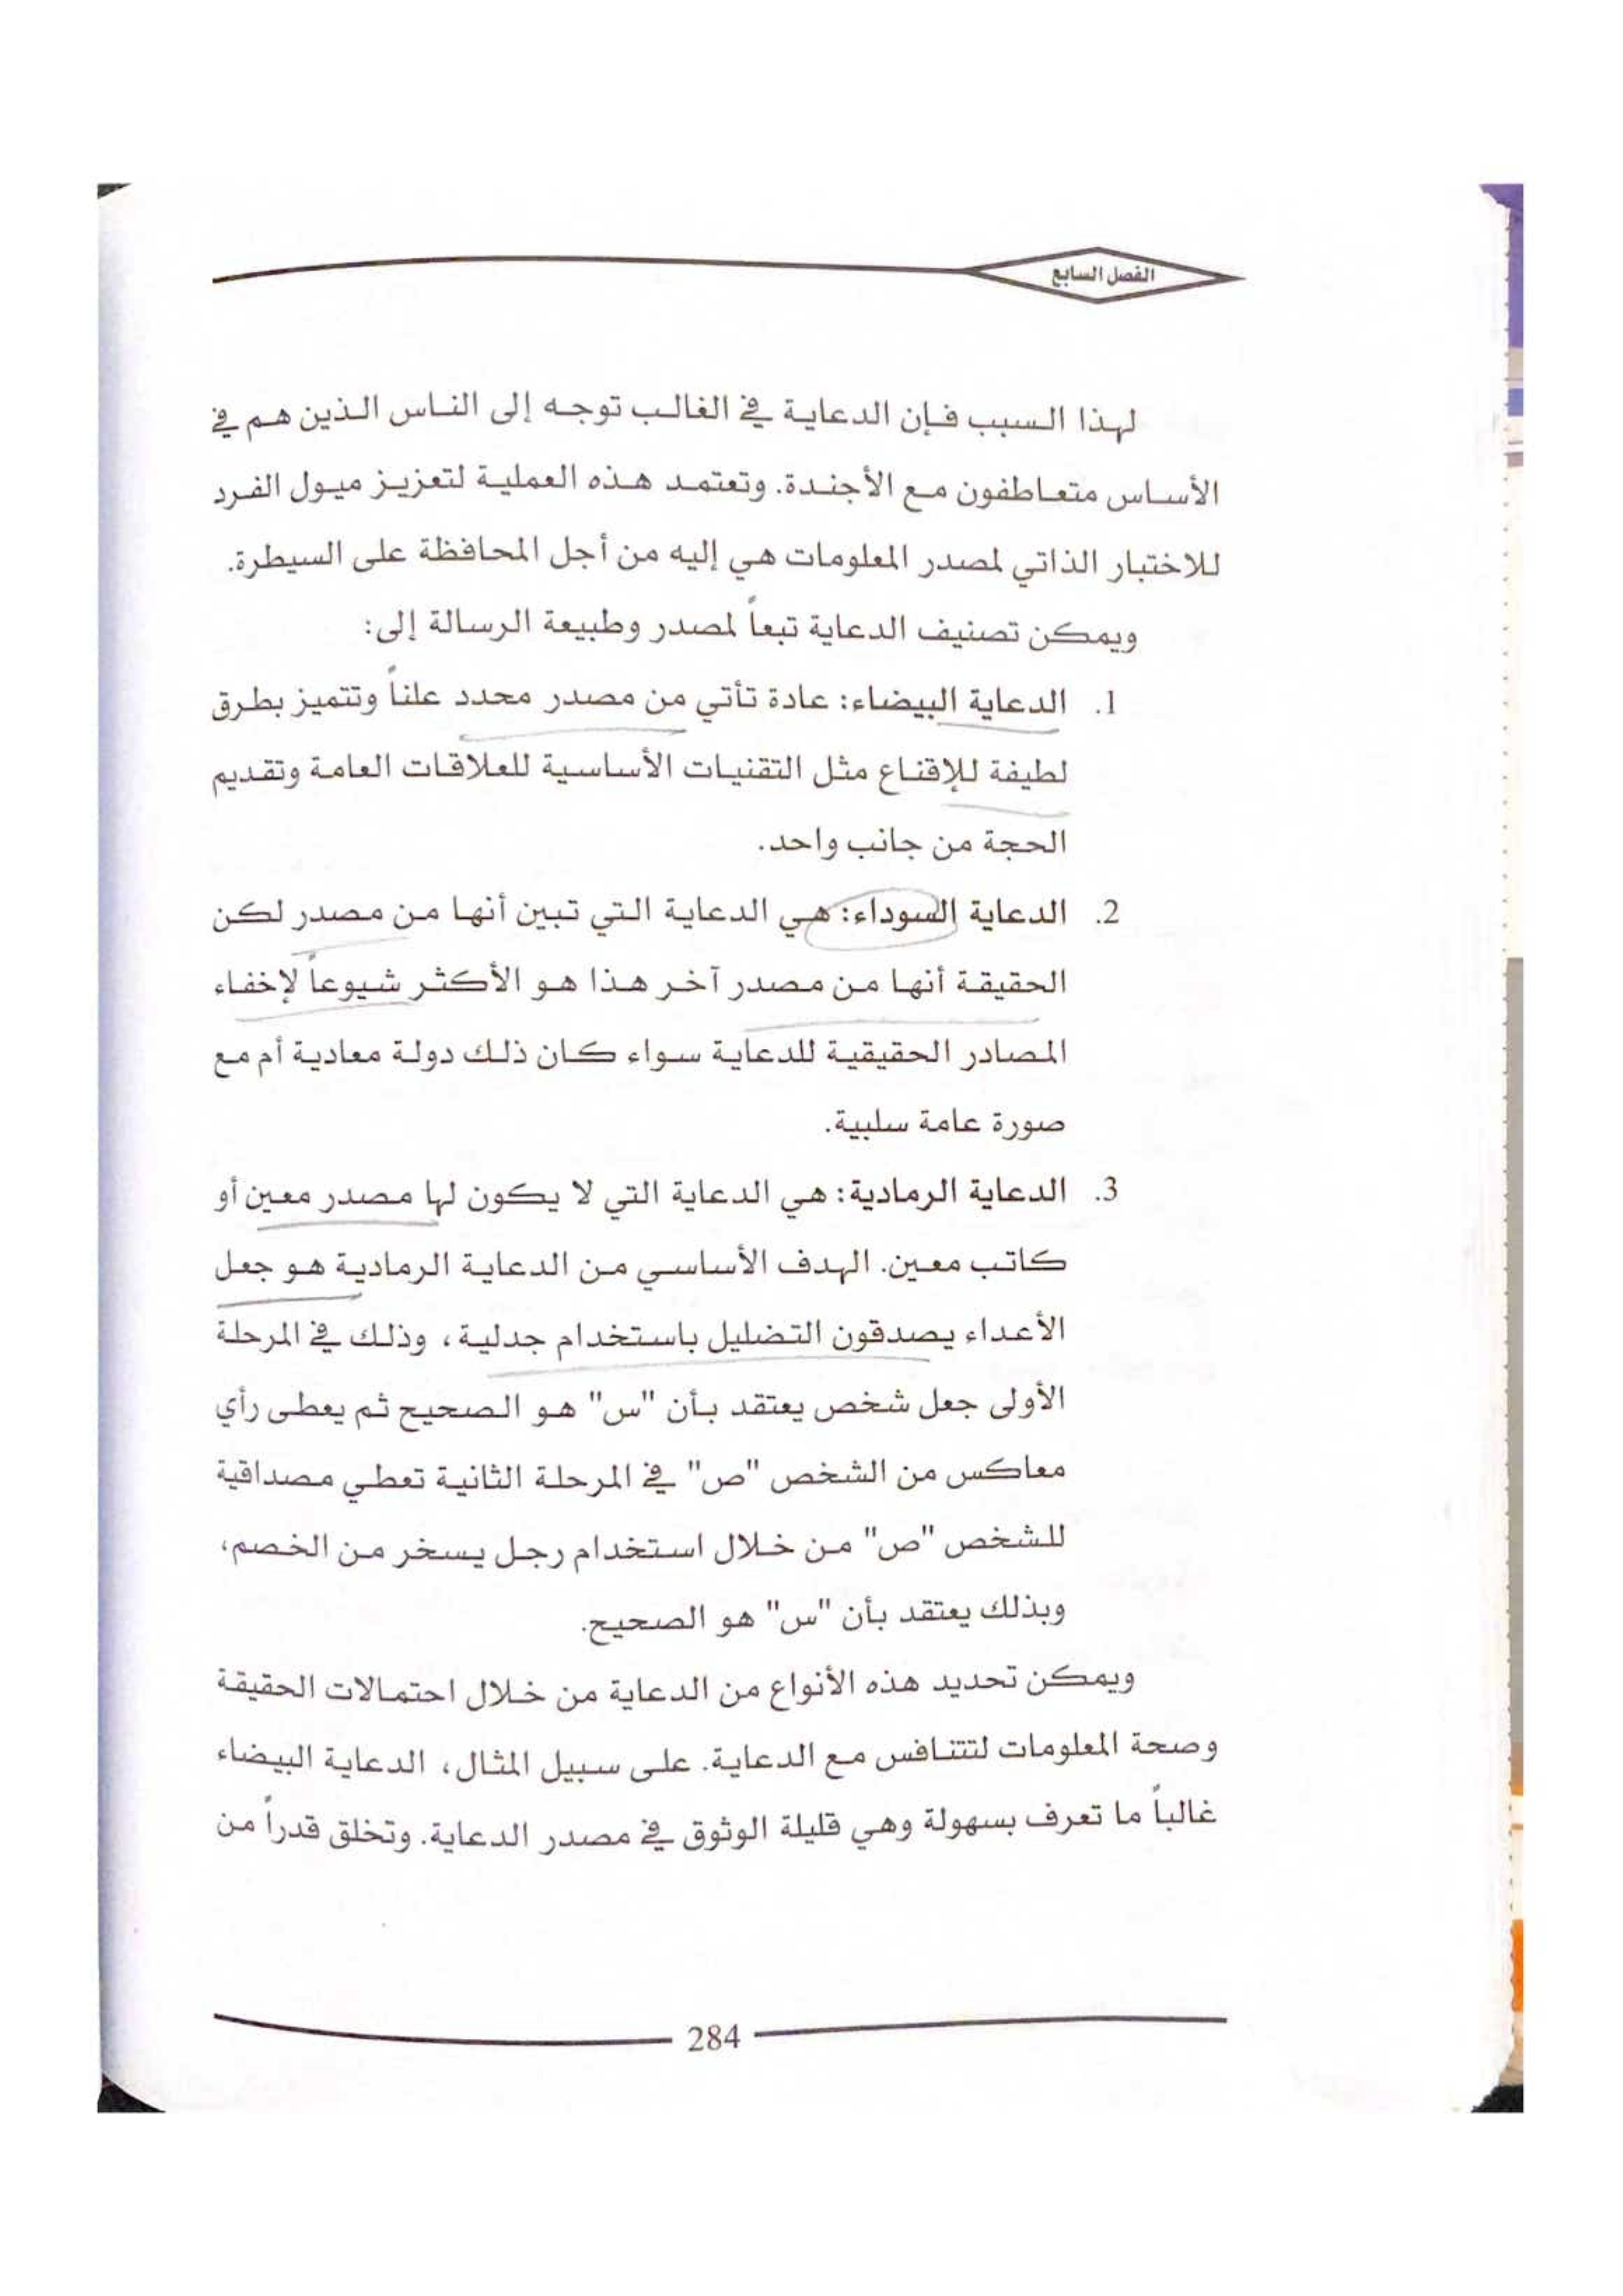 الفصل السابع
لهذا السبب فإن الدعاية في الغالب توجه إلى الناس الذين هم في
الأساس متعاطفون مع الأجندة. وتعتمد هذه العملية لتعزيز ميول الفرد
للاختبار الذاتي لمصدر المعلومات هي إليه من أجل المحافظة على السيطرة.
ويمكن تصنيف الدعاية تبعاً لمصدر وطبيعة الرسالة إلى:
1. الدعاية البيضاء: عادة تأتي من مصدر محدد علناً وتتميز بطرق
لطيفة للإقناع مثل التقنيات الأساسية للعلاقات العامة وتقديم
الحجة من جانب واحد.
2. الدعاية السوداء: هي الدعاية التي تبين أنها من مصدر لكن
الحقيقة أنها من مصدر آخر هذا هو الأكثر شيوعاً لإخفاء
المصادر الحقيقية للدعاية سواء كان ذلك دولة معادية أم مع
صورة عامة سلبية.
3. الدعاية الرمادية: هي الدعاية التي لا يكون لها مصدر معين أو
كاتب معين. الهدف الأساسي من الدعاية الرمادية هو جعل
الأعداء يصدقون التضليل باستخدام جدلية، وذلك في المرحلة
الأولى جعل شخص يعتقد بأن "س" هو الصحيح ثم يعطى رأي
معاكس من الشخص "ص" في المرحلة الثانية تعطي مصداقية
للشخص "ص" من خلال استخدام رجل يسخر من الخصم،
وبذلك يعتقد بأن "س" هو الصحيح.
ويمكن تحديد هذه الأنواع من الدعاية من خلال احتمالات الحقيقة
وصحة المعلومات لتتنافس مع الدعاية. على سبيل المثال، الدعاية البيضاء
غالباً ما تعرف بسهولة وهي قليلة الوثوق في مصدر الدعاية. وتخلق قدراً من
284